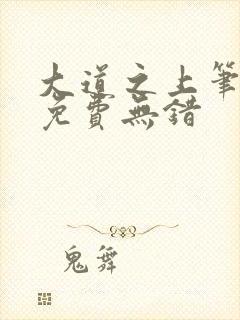 大道之上筆
免費無錯
鬼舞